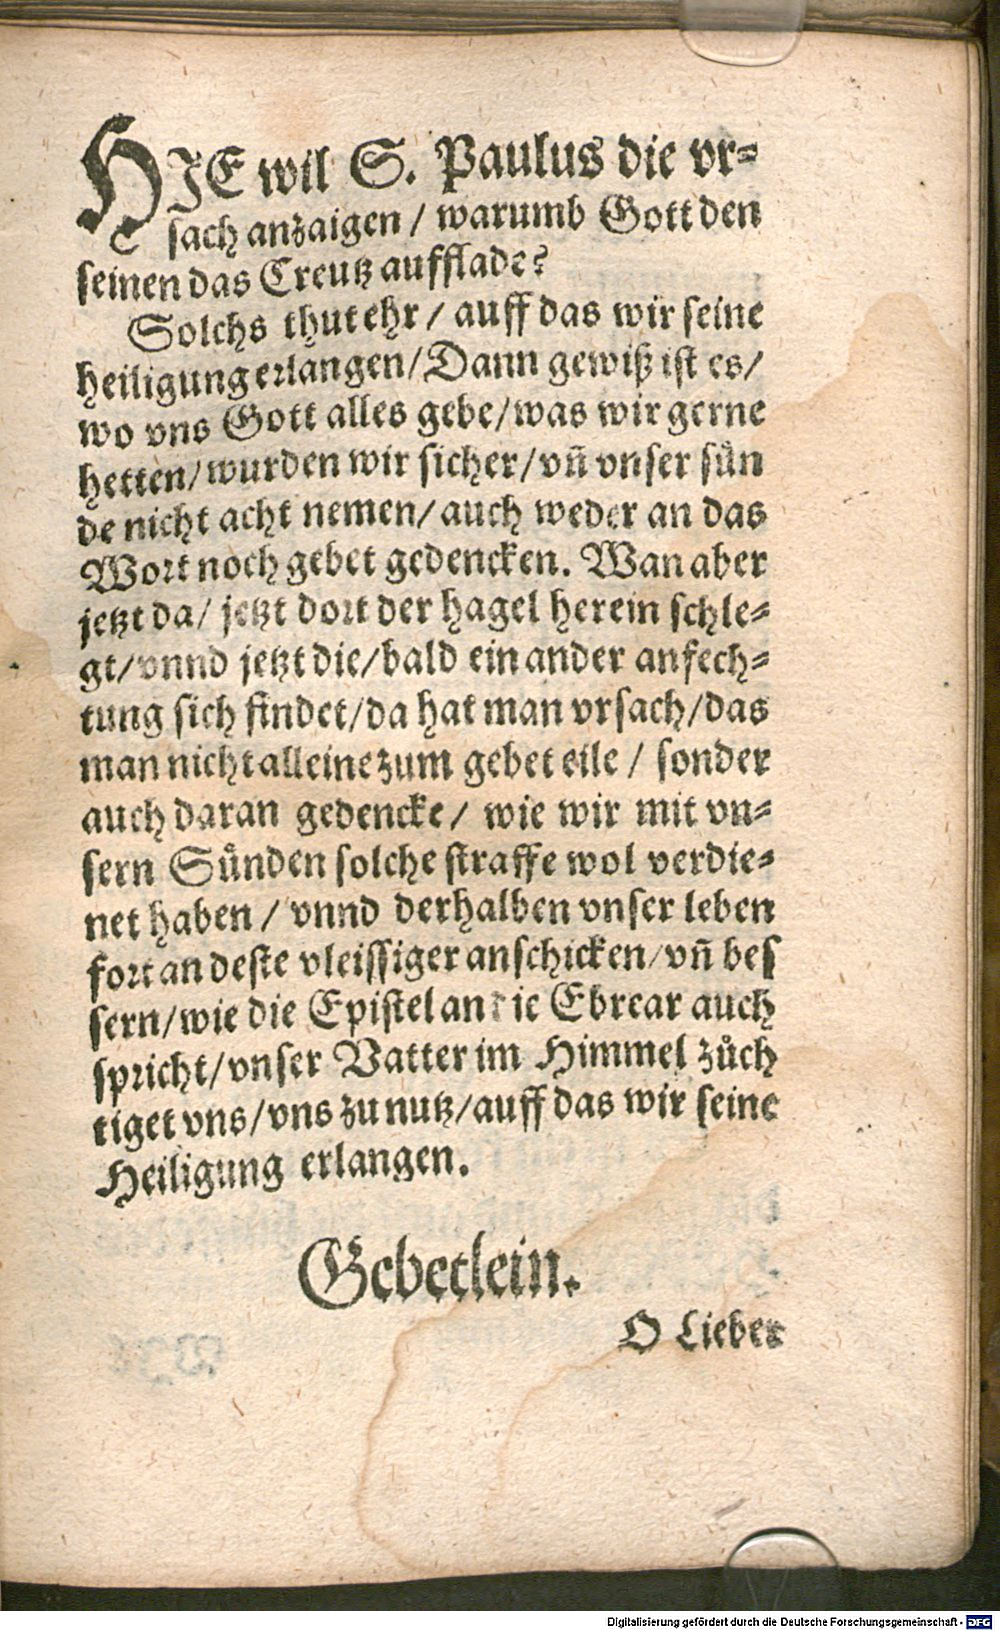 HIE wil S. Paulus die vr⸗
sach anzaigen / warumb Gott den
seinen das Creutz aufflade?
Solchs thut ehr / auff das wir seine
heiligung erlangen / Dann gewiß ist es /
wo vns Gott alles gebe / was wir gerne
hetten / wurden wir sicher / vn̄ vnser sůn
de nicht acht nemen / auch weder an das
Wort noch gebet gedencken. Wan aber
jetzt da / jetzt dort der hagel herein schle⸗
gt / vnnd jetzt die / bald ein ander anfech⸗
tung sich findet / da hat man vrsach / das
man nicht alleine zum gebet eile / sonder
auch daran gedencke / wie wir mit vn⸗
sern Sůnden solche straffe wol verdie⸗
net haben / vnnd derhalben vnser leben
fort an deste vleissiger anschicken / vn̄ bes
sern / wie die Epistel an die Ebrear auch
spricht / vnser Vatter im Himmel zůch
tiget vns / vns zu nutz / auff das wir seine
Heiligung erlangen.
Gebetlein.
O Lieber
Digitalisierung gefördert durch die Deutsche Forschungsgemeinschaft - DFG